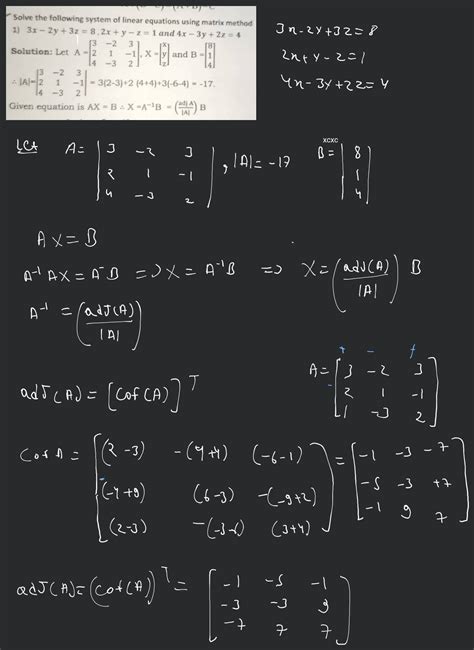 Solve the following system of linear equations using matrix method
1) 3x − 2y + 3z = 8 , 2x + y − z = 1 and 4x − 3y + 2z = 4
Solution: Let A = [3 −2 3; 2 1 −1; 4 −3 2], X = [x; y; z] and B = [8; 1; 4]
∴ |A| = |3 −2 3; 2 1 −1; 4 −3 2| = 3(2-3)+2 (4+4)+3(-6-4) = -17.
Given equation is AX = B ∴ X =A⁻¹B = (adj A/|A|) B
3x-2y+3z=8
2x+y-z=1
4x-3y+2z=4
A= | 3 -2 3; 2 1 -1; 4 -3 2 | , |A|= -17
xcxc
B= | 8; 1; 4 |
AX=B
A⁻¹AX = A⁻B => X = A⁻¹B => X = (adJ(A)/|A|) B
A⁻¹ = (adJ(A)/|A|)
adJ(A) = [Cof(A)]ᵀ
+ - +
A= [3 -2 3; 2 1 -1; 1 -3 2]
-
Cof A = [(2-3) -(4+4) (-6-1); -(-4+9) (6-3) -(-9+2); (2-3) -(-3-6) (3+4)] = [-1 -3 -7; -5 -3 +7; -1 9 7]
adJ(A)=(Cof(A))ᵀ = [-1 -5 -1; -3 -3 9; -7 7 7]